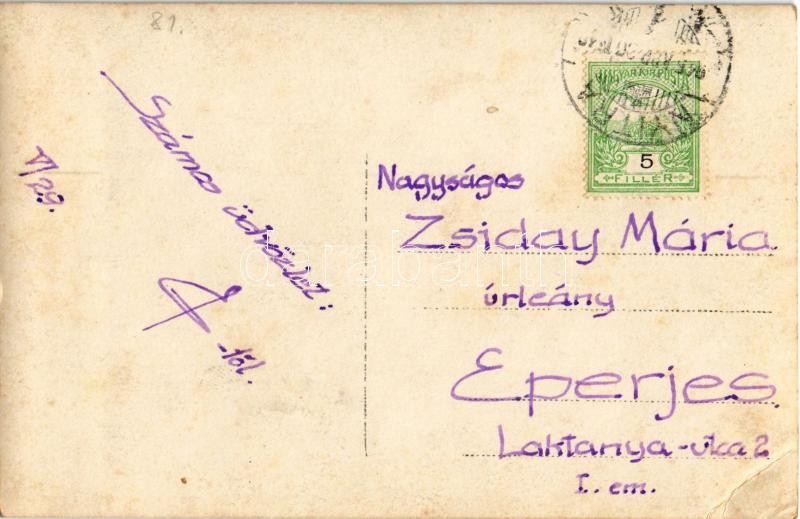 81.
V/29.
Számos üdvözlet:
-től.
MAGYAR KIR. POSTA
5
FILLÉR
NYITRA
Nagyságos
Zsiday Mária
úrleány
Eperjes
Laktanya-utca 2
I. em.
darabanth